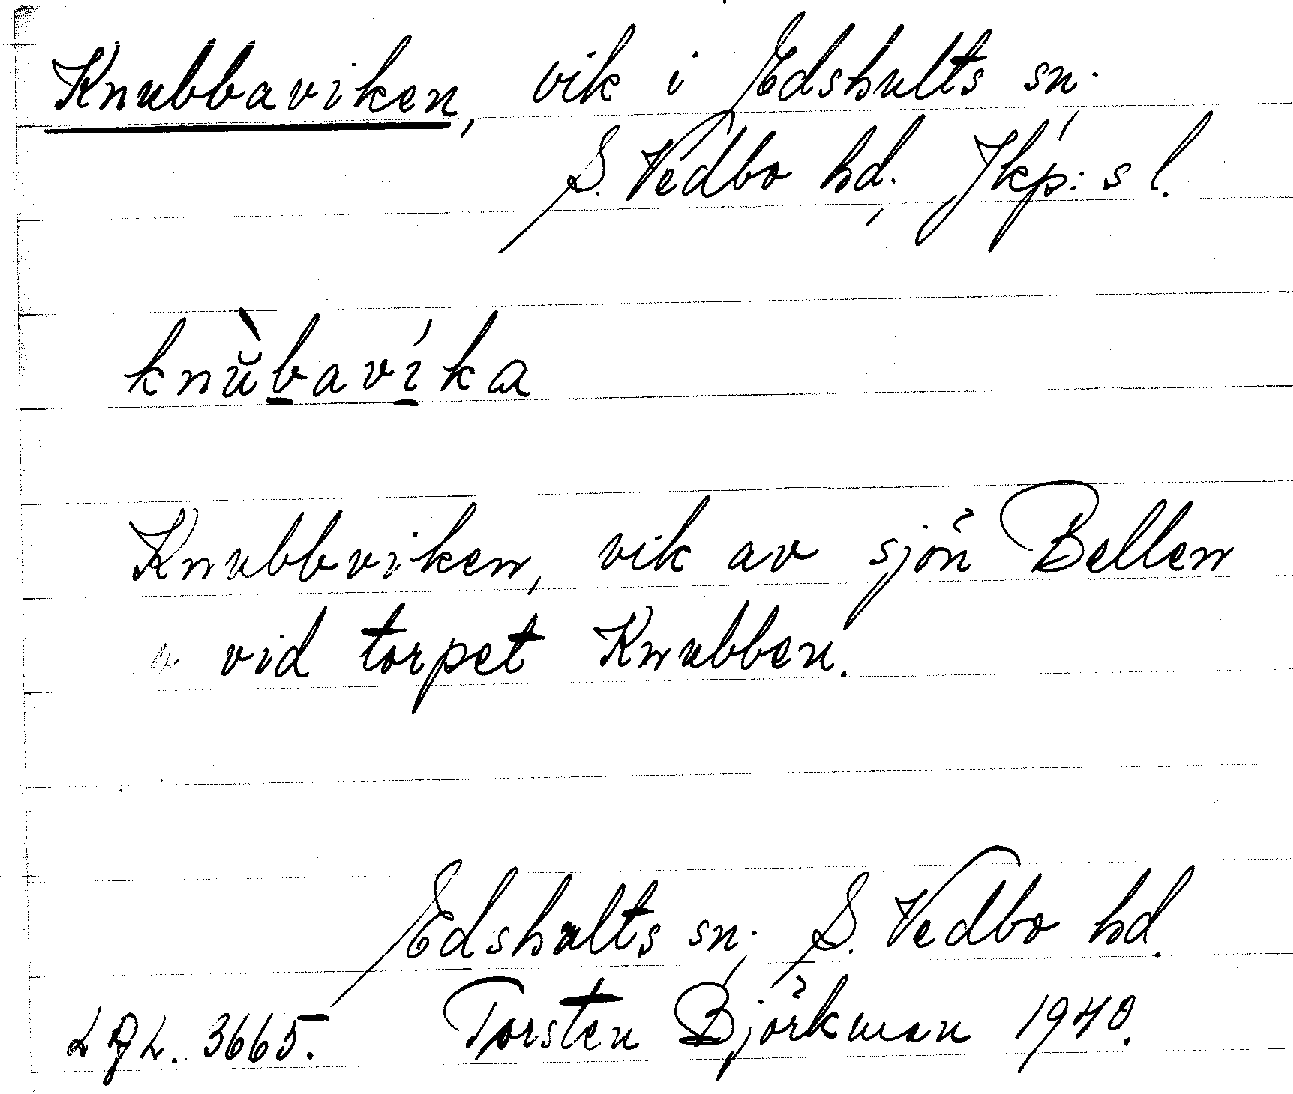 Knubbaviken, vik i Edshults sn.
S. Vedbo hd. Jkp: s l.
knùbavíka
Knubbviken, vik av sjön Bellen
vid torpet Knubben.
Edshults sn., S. Vedbo hd.
3665. Torsten Björkman 1940.